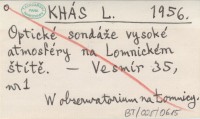 KHÁS L. 1956.
Optické sondáže vysoké
atmosféry na Lomnickém
štítě. – Vesmír 35,
nr 1
W obserwatorium na Łomnicy.
B7/005/0615